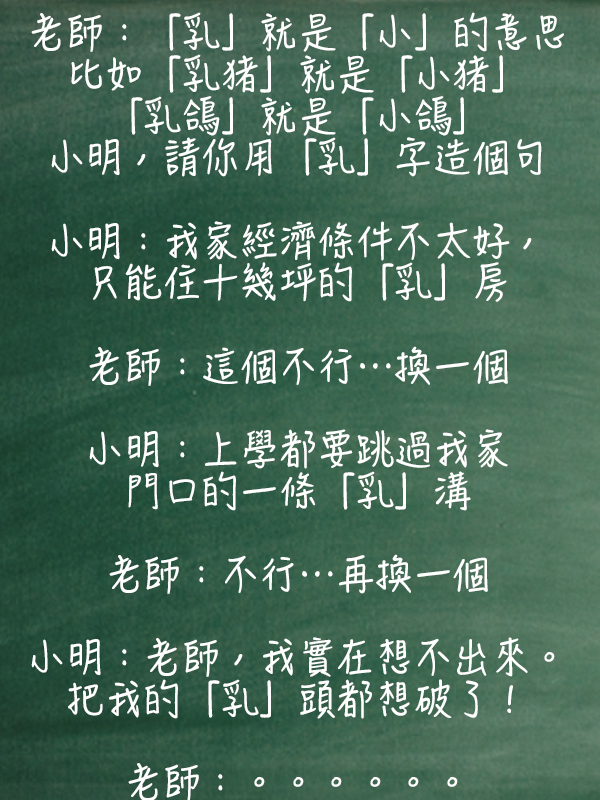 老師：「乳」就是「小」的意思
比如「乳猪」就是「小猪」
「乳鴿」就是「小鴿」
小明，請你用「乳」字造個句
小明：我家經濟條件不太好，
只能住十幾坪的「乳」房
老師：這個不行…換一個
小明：上學都要跳過我家
門口的一條「乳」溝
老師：不行…再換一個
小明：老師，我實在想不出來。
把我的「乳」頭都想破了！
老師：。。。。。。